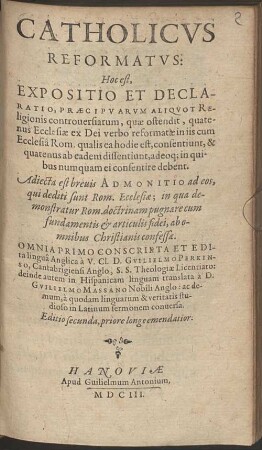 CATHOLICVS
REFORMATVS:
Hoc est.
EXPOSITIO ET DECLA-
RATIO, PRÆCIPVARVM ALIQVOT Re-
ligionis controuersiarum, quæ ostendit, quate-
nus Ecclesiæ ex Dei verbo reformatæ in iis cum
Ecclesiâ Rom. qualis ea hodie est, consentiunt, &
quatenus ab eadem dissentiunt, adeoq; in qui-
bus nunquam ei consentire debent.
Adiecta est breuis ADMONITIO ad eos,
qui dediti sunt Rom. Ecclesiæ; in qua de-
monstratur Rom. doctrinam pugnare cum
fundamentis & articulis fidei, ab o-
mnibus Christianis confessâ.
OMNIA PRIMO CONSCRIPTA ET EDI-
ta linguâ Anglicâ à V. Cl. D. GVILIELMO PERKIN-
SO, Cantabrigiensi Anglo, S. S. Theologiæ Licentiato:
deinde autem in Hispanicam linguam translata à D.
GVILIELMO MASSANO Nobili Anglo: ac de-
mum, à quodam linguarum & veritatis stu-
dioso in Latinum sermonem conuersa.
Editio secunda, priore longè emendatior.
HANOVIÆ
Apud Guilielmum Antonium,
MDCIII.